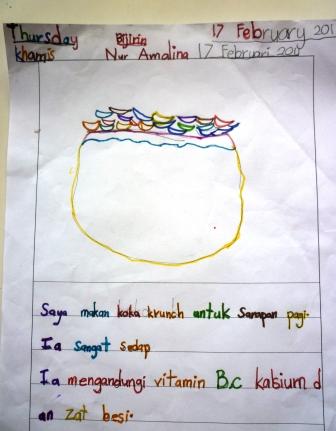 Thursday Bijirin 17 February 201
Khamis Nur Amalina 17 Februari 201
Saya makan koko krunch untuk sarapan pagi.
Ia sangat sedap
Ia mengandungi vitamin B.c kalsium d
an zat besi.